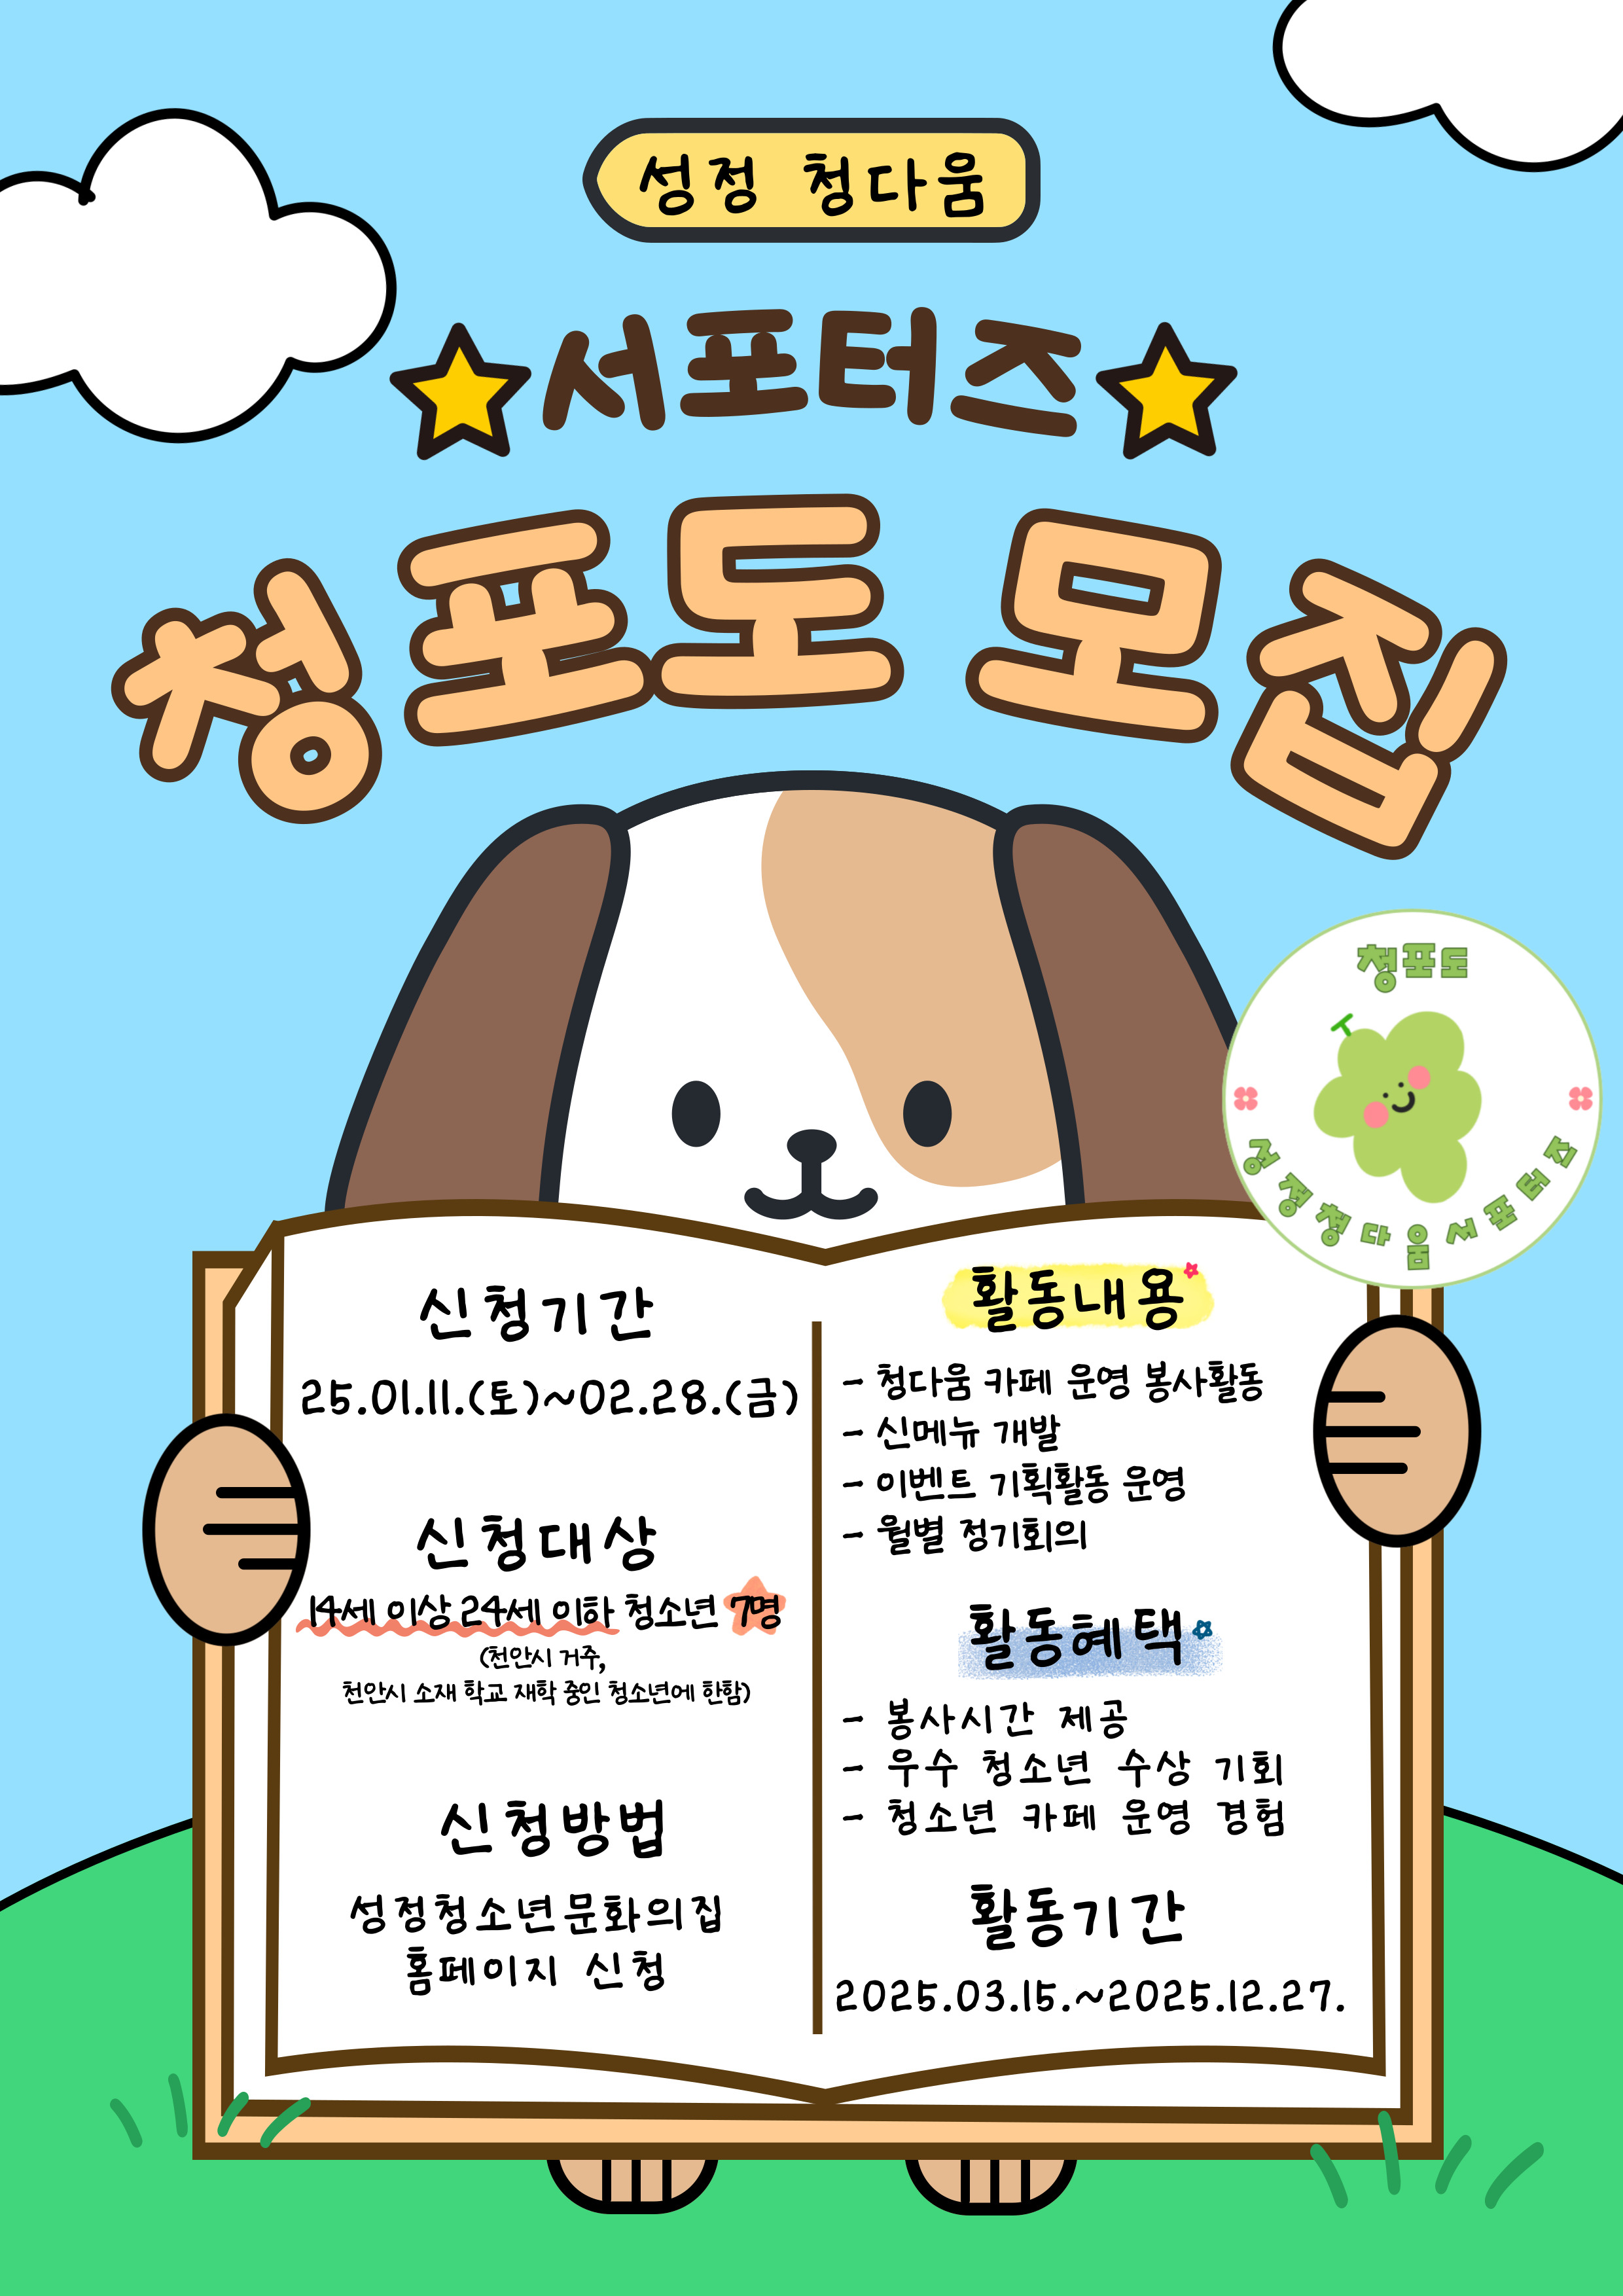 성정 청다움
서포터즈
청포도 모집
청포도
성정청다움서포터즈
신청기간
25.01.11.(토)~02.28.(금)
신청대상
14세 이상 24세 이하 청소년 7명
(천안시 거주,
천안시 소재 학교 재학 중인 청소년에 한함)
신청방법
성정청소년문화의집
홈페이지 신청
활동내용
- 청다움 카페 운영 봉사활동
- 신메뉴 개발
- 이벤트 기획활동 운영
- 월별 정기회의
활동혜택
- 봉사시간 제공
- 우수 청소년 수상 기회
- 청소년 카페 운영 경험
활동기간
2025.03.15.~2025.12.27.